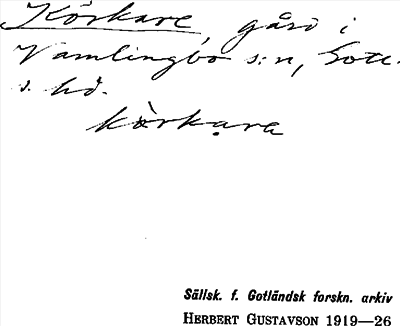 Körkare, gård i
Vamlingbo s:n, Gotl.
s. hd.
kòrkạra
Sällsk. f. Gotländsk forskn. arkiv
HERBERT GUSTAVSON 1919—26